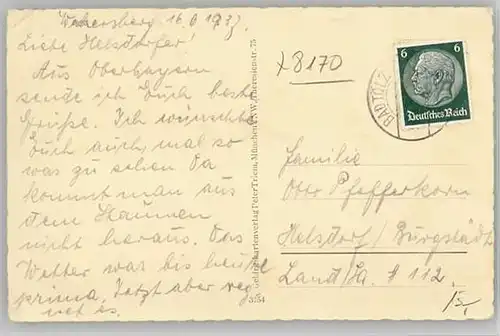 Wakersberg 16.6.1937.
Liebe Helsdorfer!
Aus Oberbayern
sende ich Euch beste
Grüße. Ich wünschte
Euch auch mal so
was zu sehen. Da
kommt man aus
dem Staunen
nicht heraus. Das
Wetter war bis heute
prima. Jetzt aber reg
net es.
Gebirgskartenverlag Peter Triem, München N.W., Theresienstr. 75
5554
x 8170
6 6
Deutsches Reich
BAD TÖLZ
Familie
Otto Pfefferkorn
Helsdorf/Burgstädt
Land/Sa. # 112.